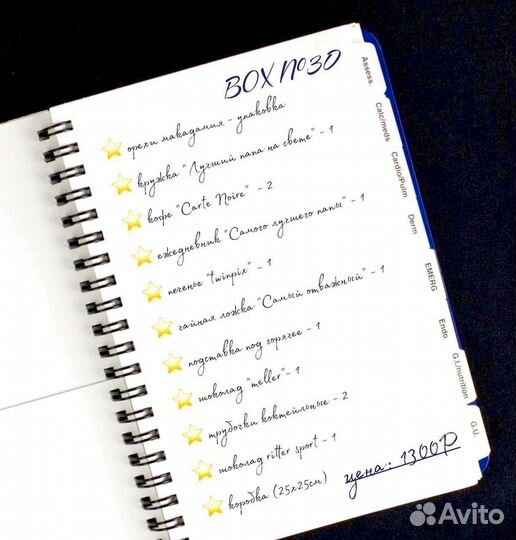 BOX №30
орехи макадамия - упаковка
кружка "Лучший папа на свете" - 1
кофе "Carte Noire" - 2
ежедневник "Самого лучшего папы" - 1
печенье "twinpix" - 1
чайная ложка "Самый отважный" - 1
подставка под горячее - 1
шоколад "meller" - 1
трубочки коктейльные - 2
шоколад ritter sport - 1
коробка (25х25см)
цена: 1300₽
Assess
Calc/meds
Cardio/Pulm
Derm
EMERG
Endo
G.I./nutrition
G.U.
Avito